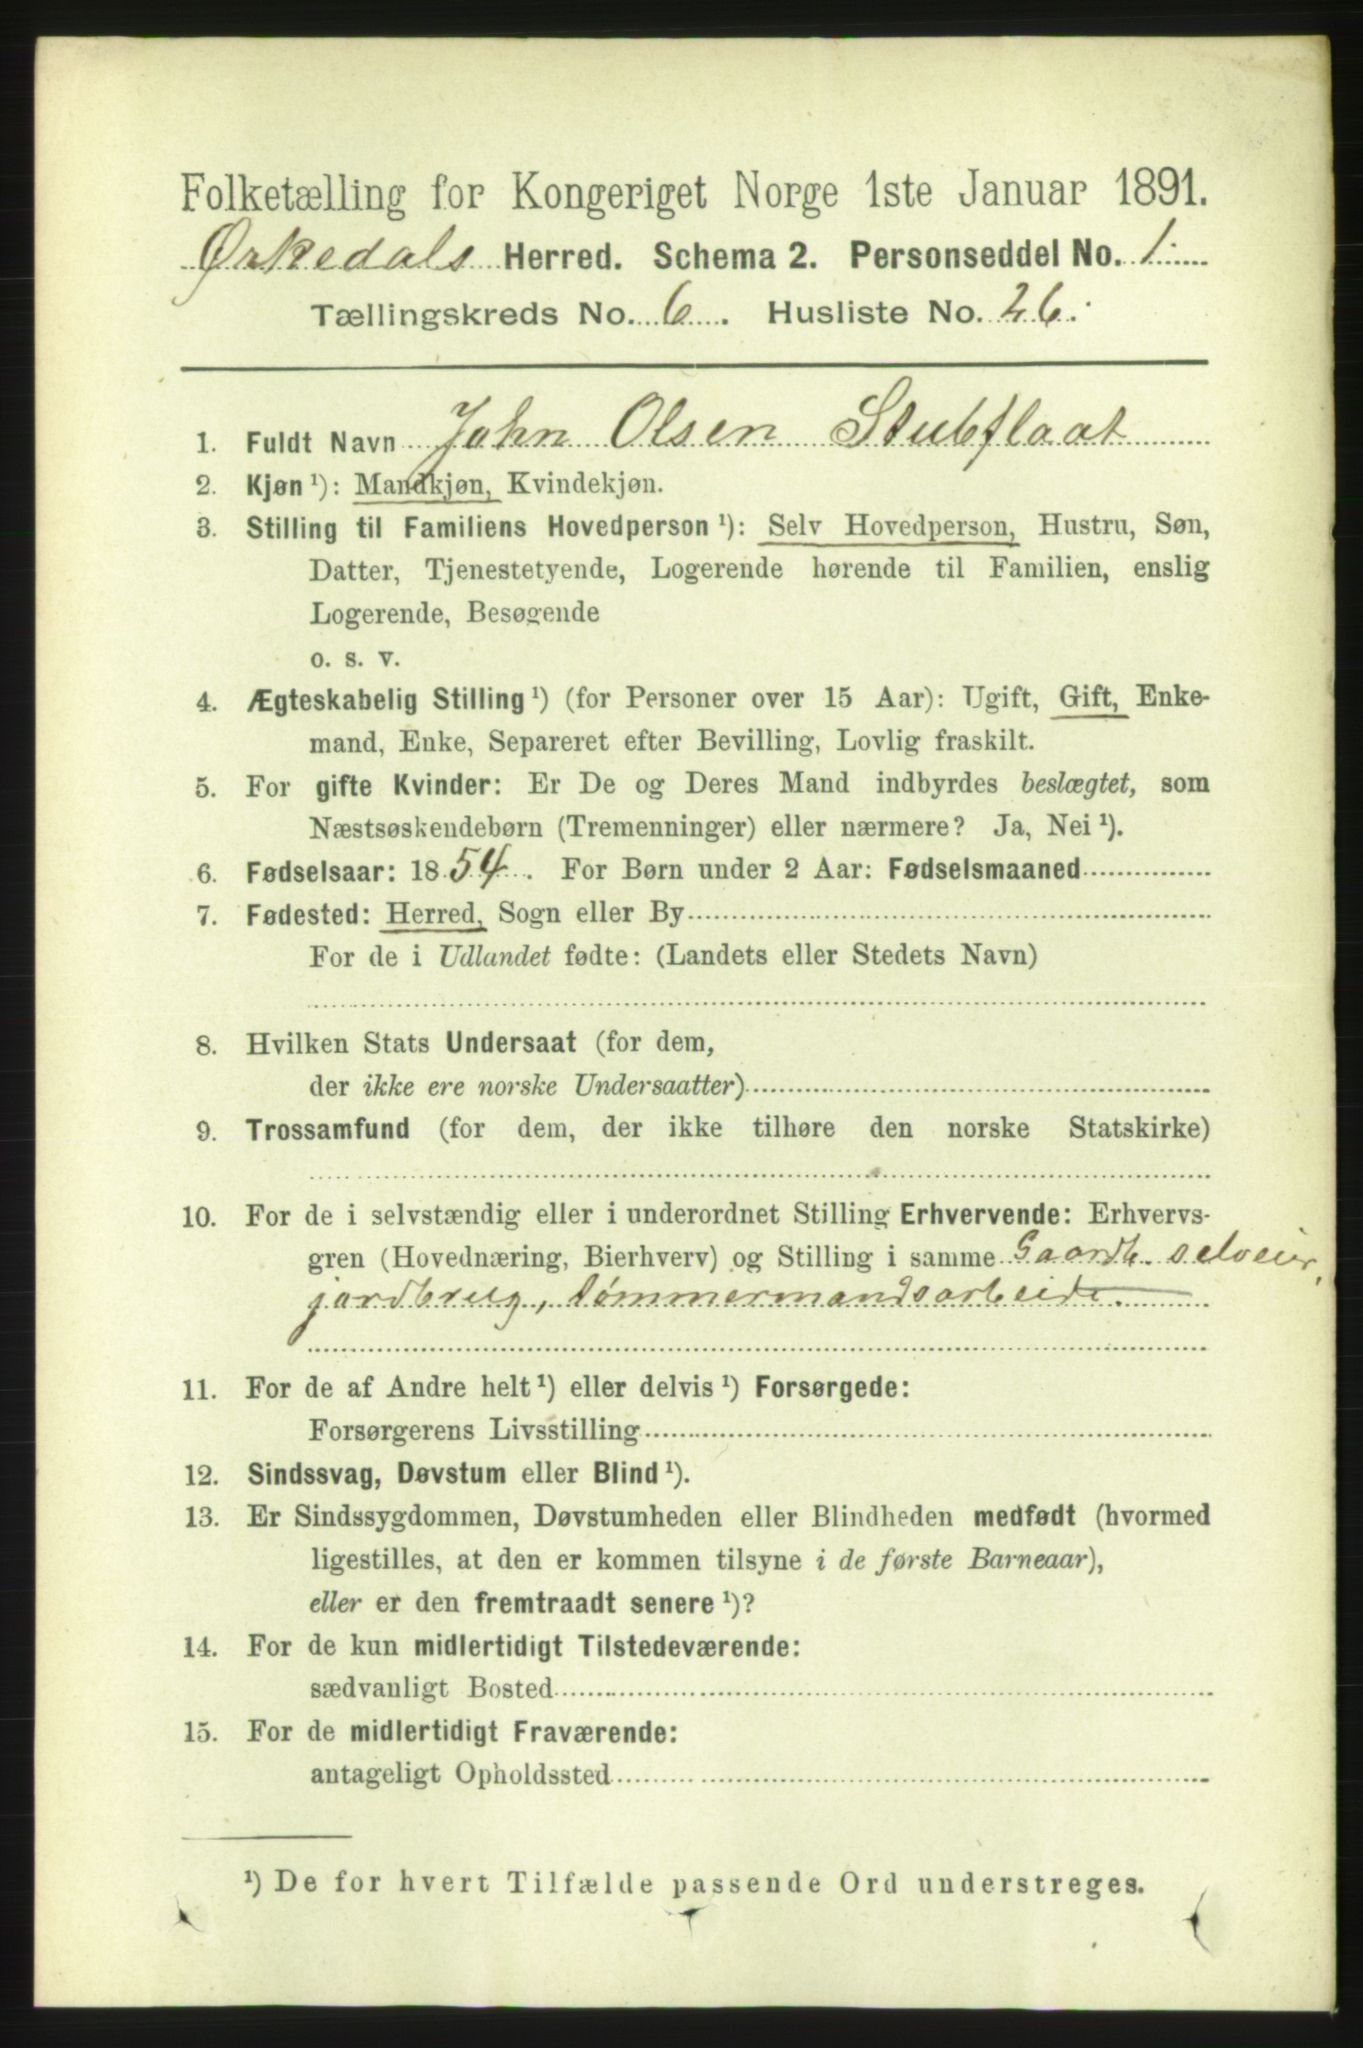 Folketælling for Kongeriget Norge 1ste Januar 1891.
Ørkedals Herred. Schema 2. Personseddel No. 1.
Tællingskreds No. 6. Husliste No. 26.
1. Fuldt Navn John Olsen Stubflaat
2. Kjøn ¹): Mandkjøn, Kvindekjøn.
3. Stilling til Familiens Hovedperson ¹): Selv Hovedperson, Hustru, Søn,
Datter, Tjenestetyende, Logerende hørende til Familien, enslig
Logerende, Besøgende
o. s. v.
4. Ægteskabelig Stilling ¹) (for Personer over 15 Aar): Ugift, Gift, Enke-
mand, Enke, Separeret efter Bevilling, Lovlig fraskilt.
5. For gifte Kvinder: Er De og Deres Mand indbyrdes beslægtet, som
Næstsøskendebørn (Tremenninger) eller nærmere? Ja, Nei ¹).
6. Fødselsaar: 1854. For Børn under 2 Aar: Fødselsmaaned
7. Fødested: Herred, Sogn eller By
For de i Udlandet fødte: (Landets eller Stedets Navn)
8. Hvilken Stats Undersaat (for dem,
der ikke ere norske Undersaatter)
9. Trossamfund (for dem, der ikke tilhøre den norske Statskirke)
10. For de i selvstændig eller i underordnet Stilling Erhvervende: Erhvervs-
gren (Hovednæring, Bierhverv) og Stilling i samme Gaardb. selveier,
jordbrug, tømmermandsarbeide.
11. For de af Andre helt ¹) eller delvis ¹) Forsørgede:
Forsørgerens Livsstilling
12. Sindssvag, Døvstum eller Blind ¹).
13. Er Sindssygdommen, Døvstumheden eller Blindheden medfødt (hvormed
ligestilles, at den er kommen tilsyne i de første Barneaar),
eller er den fremtraadt senere ¹)?
14. For de kun midlertidigt Tilstedeværende:
sædvanligt Bosted
15. For de midlertidigt Fraværende:
antageligt Opholdssted
¹) De for hvert Tilfælde passende Ord understreges.